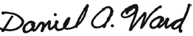 Daniel A. Ward